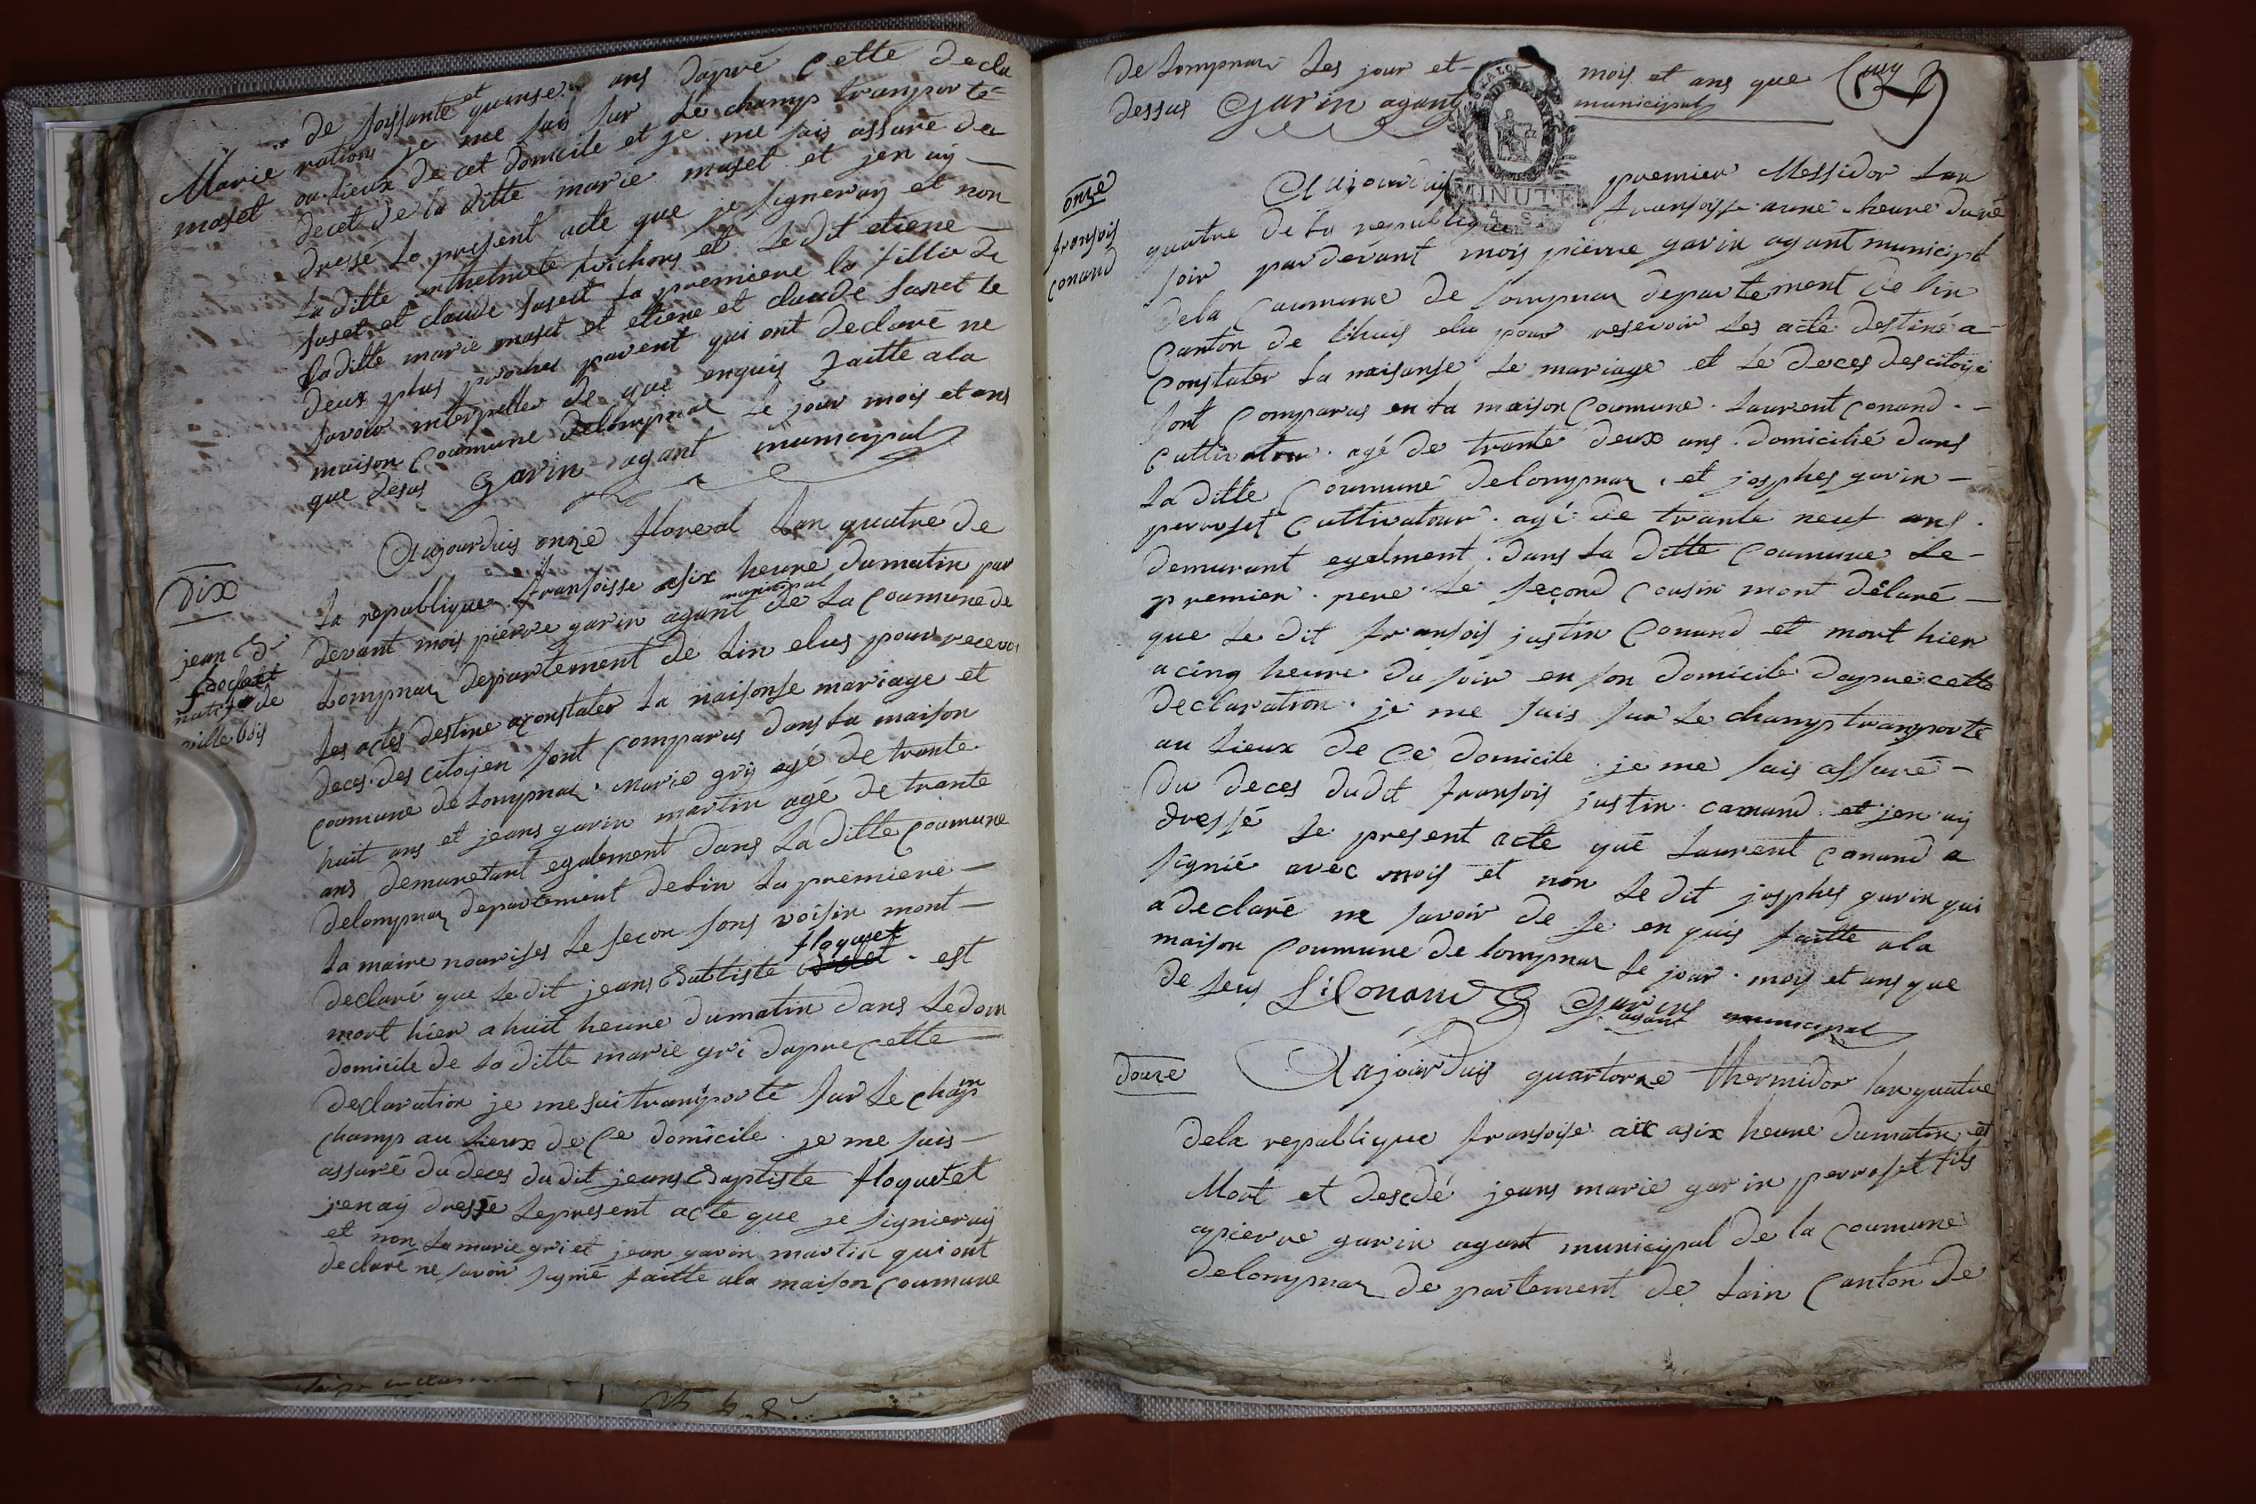 Marie
maset
de soissante et quinse ans dapré cette decla
rations je me suis sur le champs transporté
au lieux de cet domicile et je me suis assuré de
decet de la ditte marie maset et jen ay
dressé le present acte que je signeray et non
la ditte anthelmete et le dit etiene
suset et claude suset la premiere la fillie de
laditte marie maset et etiene et claude suset le
deux plus proches parent qui ont declaré ne
savoir interpelles de que enquis faitte ala
maison coumune delompnas le jour mois et ans
que desus Garin agant municipal
Dix
jean B
floquet
natif de
ville bois
Aujourduis onze floreal lan quatre de
la republique fransoisse asix heure dumatin par
devant mois pierre garin agant municipal de la coumune de
Lompnaz departement de lin elus pour recevoi
les actes destine aconstater la naisonse mariage et
deces des citoyen sont comparus dans la maison
coumune de Lompnaz Marie gri agé de trante
huit ans et jeans garin martin agé de trante
ans demuretant egalement dans la ditte coumune
delompnaz departement delin la premiere
la maire nourises le secon sons voisin mont
declaré que ledit jeans Battiste floquet est
mort hier a huit heure dumatin dans ledom
domicile de la ditte marie gri dapre cette
declaration je me sui transporté sur le champ
champ au lieux de ce domicile je me suis
assuré du deces du dit jeans Baptiste floquet et
jenay dressé lepresent acte que je signieray
et non la marie gri et jean garin martin qui ont
declaré ne savoir signié faitte ala maison coumune
de Lompnaz les jour et mois et ans que
dessus Garin agant municipal
onze
fransois
conand
Aujourduis premier Messidor lan
quatre de la republique fransoisse aune heure duré
soir par devant mois pierre garin agant municipal
dela coumune de Lompnaz departement de lin
canton de lhuis elu pour resevoir les acte destiné a
constater la naisanse le mariage et le deces des citoye
sont comparus en la maison coumune laurent conand
cultivateur agé de trante deux ans domicilié dans
la ditte coumune delompnaz et josphes garin
perroset cultivatour agé de trante neuf ans
demurant egalment dans la ditte coumune le
premier pere le segond cousin mont délaré
que le dit fransois justin conand et mort hier
a cinq heure du soir en son domicile dapre cette
declaration je me suis sur le champ transporté
au lieux de ce domicile je me suis assuré
du deces dudit fransois justin canand et jen ay
dressé le present acte que laurent canand a
signié avec mois et non le dit josphes garin qui
a declaré ne savoir de se en quis faitte ala
maison coumune de lompnaz le jour mois et ans que
de seus L Conand Garin agant municipal
douze
Aujourduis quartorze thermidor lan quatre
dela republique fransoise asix heure dumatin et
Mort et desedé jeans marie garin perroset fils
apierre garin agant municipal de la coumune
delompnaz de partement de lain canton de
MINUTE